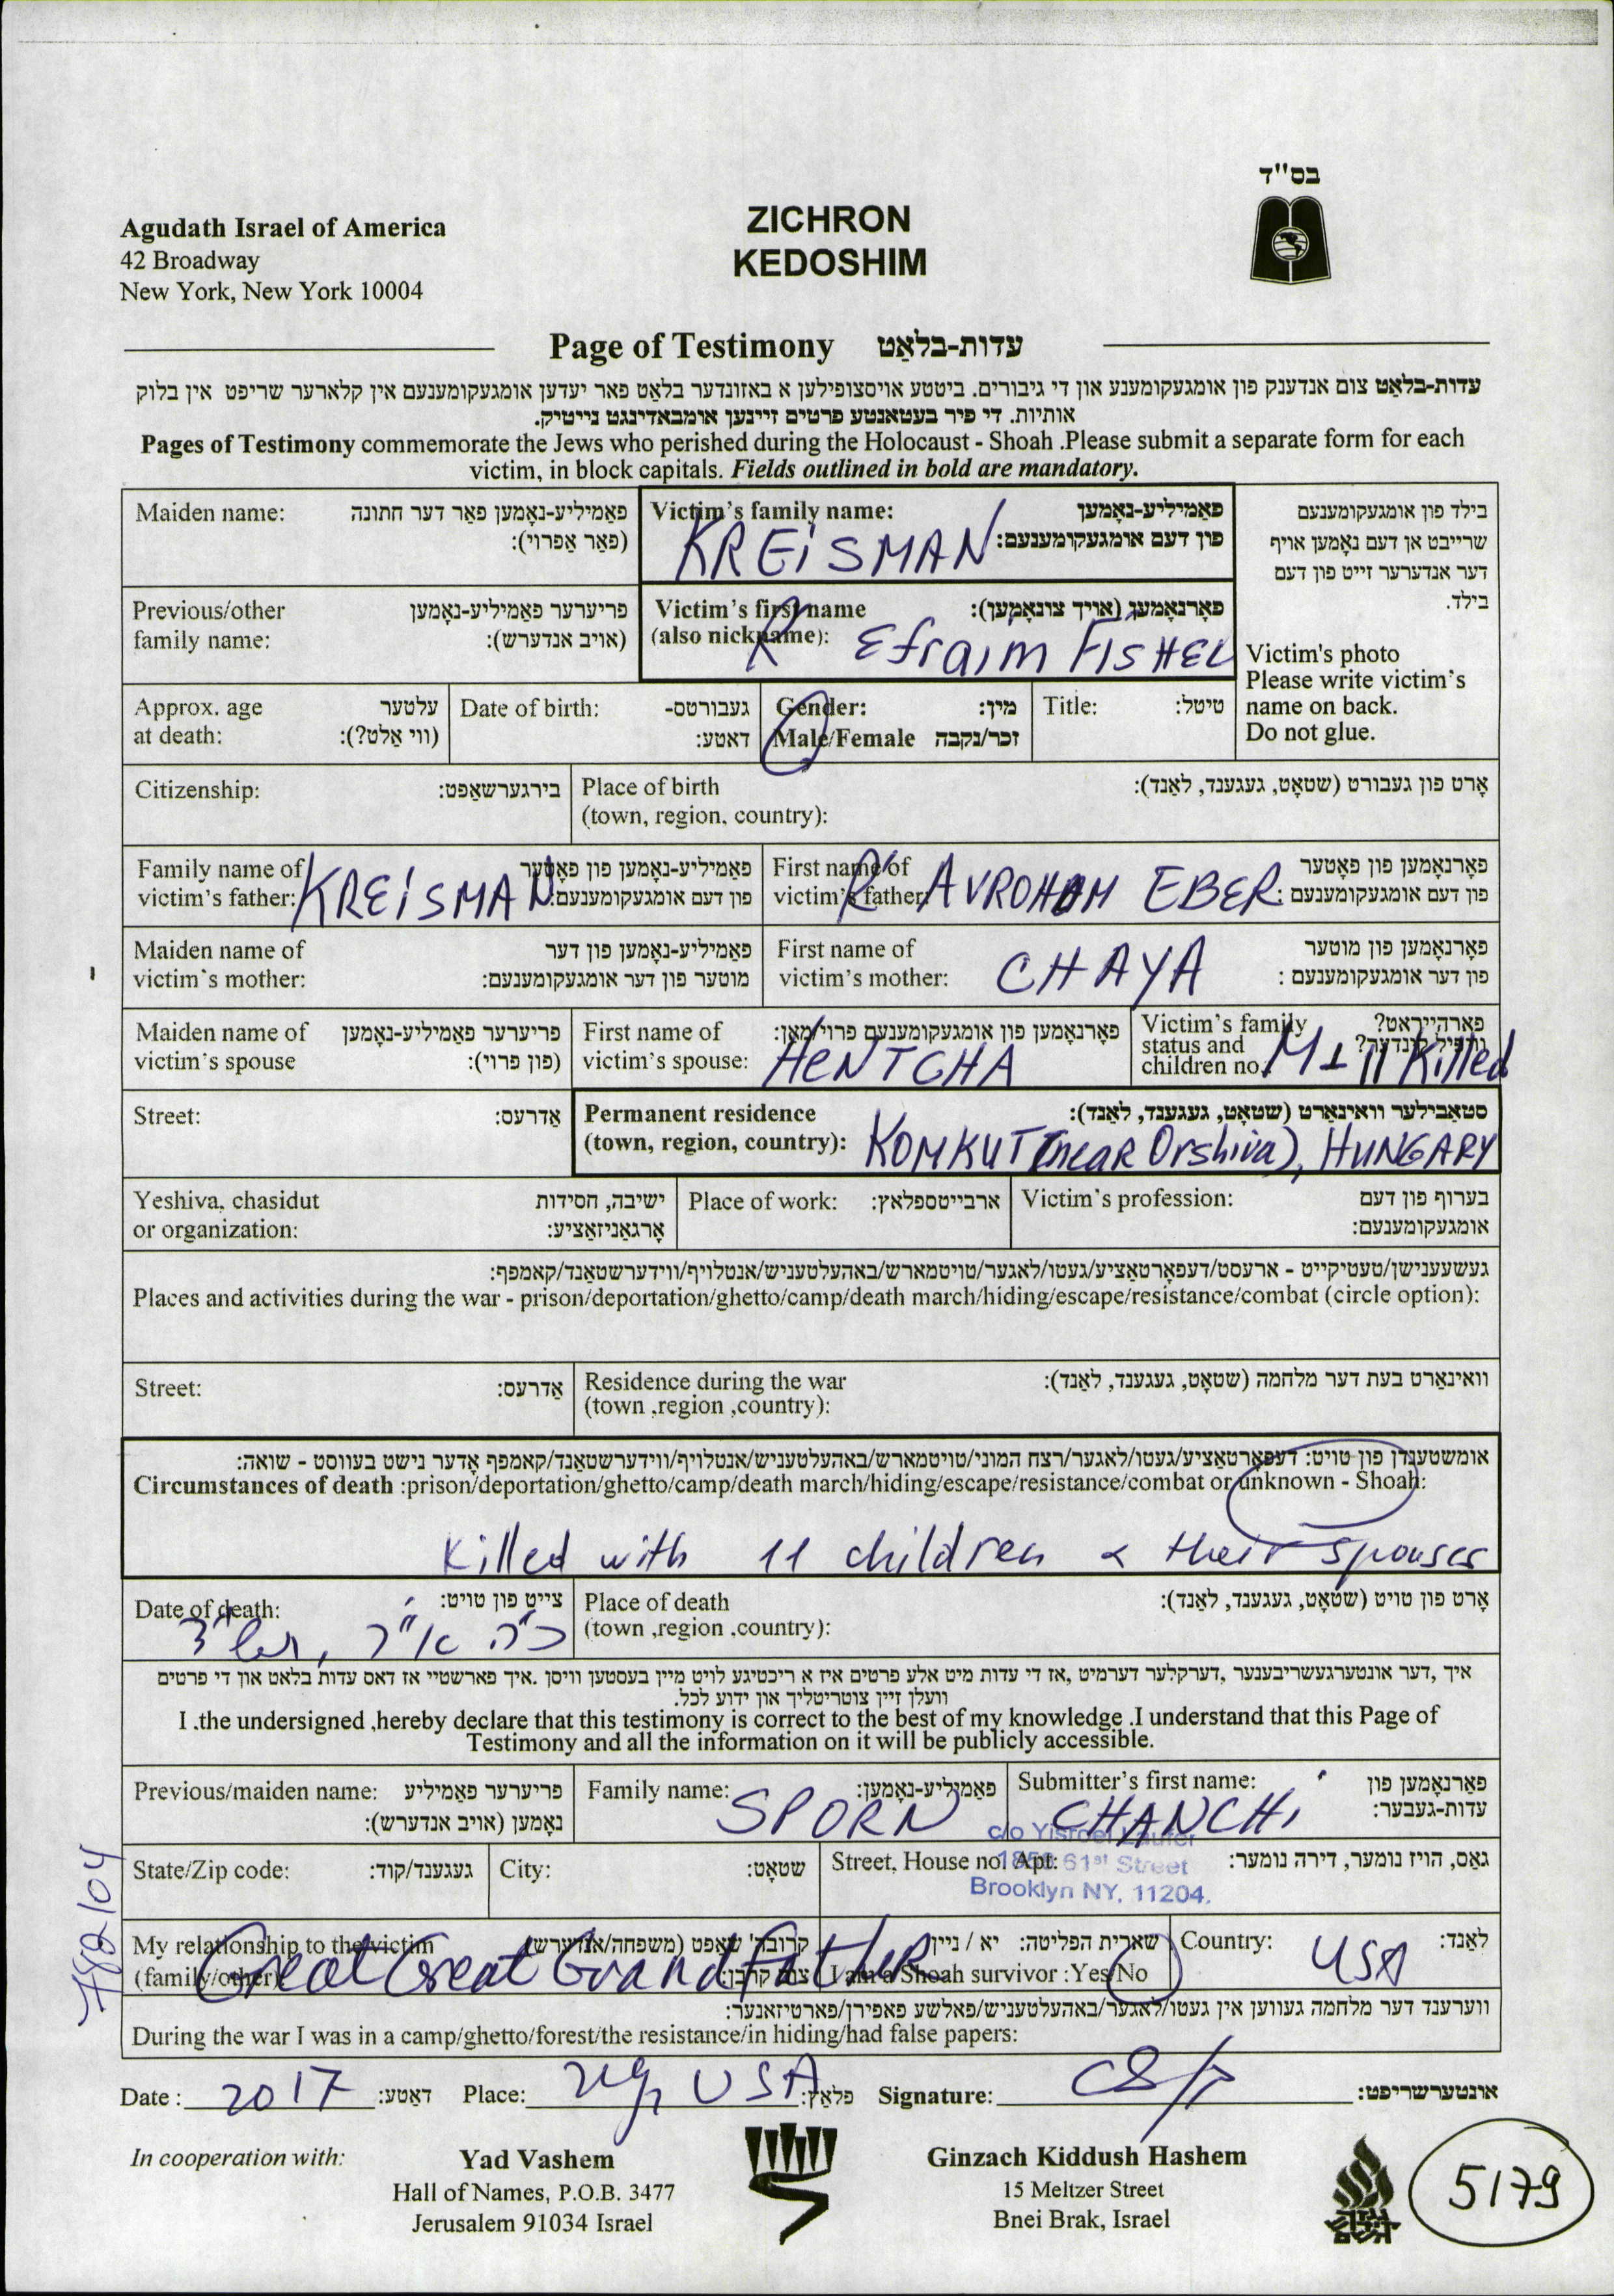 בס"ד
Agudath Israel of America
42 Broadway
New York, New York 10004
ZICHRON
KEDOSHIM
Page of Testimony עדות-בלאַט
עדות-בלאַט צום אנדענק פון אומגעקומענע און די גיבורים. ביטטע אויסצופילען א באזונדער בלאַט פאר יעדען אומגעקומענעם אין קלארער שריפט אין בלוק
אותיות. די פיר בעטאנטע פרטים זיינען אומבאדינגט נייטיק.
Pages of Testimony commemorate the Jews who perished during the Holocaust - Shoah .Please submit a separate form for each
victim, in block capitals. Fields outlined in bold are mandatory.
Maiden name: פאַמיליע-נאָמען פאַר דער חתונה
(פאַר אַפרוי):
Victim's family name: פאַמיליע-נאָמען
פון דעם אומגעקומענעם:
KREiSMAN
בילד פון אומגעקומענעם
שרייבט אן דעם נאָמען אויף
דער אנדערער זייט פון דעם
בילד.
Victim's photo
Please write victim's
name on back.
Do not glue.
Previous/other פריערער פאַמיליע-נאָמען
family name: (אויב אנדערש):
Victim's first name פאָרנאָמען (אויך צונאָמען):
(also nickname):
R' Efraim FiSHEL
Approx. age עלטער
at death: (ווי אַלט?):
Date of birth: געבורטס-
דאטע:
Gender: מין:
Male/Female זכר/נקבה
Title: טיטל:
Citizenship: בירגערשאַפט:
Place of birth אָרט פון געבורט (שטאָט, געגענד, לאַנד):
(town, region, country):
Family name of פאַמיליע-נאָמען פון פאָטער
victim's father: פון דעם אומגעקומענעם:
KREiSMAN
First name of פאָרנאָמען פון פאָטער
victim's father: פון דעם אומגעקומענעם:
R' AVROHAM EBER
Maiden name of פאַמיליע-נאָמען פון דער
victim's mother: מוטער פון דער אומגעקומענעם:
First name of פאָרנאָמען פון מוטער
victim's mother: פון דער אומגעקומענעם:
CHAYA
Maiden name of פריערער פאַמיליע-נאָמען
victim's spouse (פון פרוי):
First name of פאָרנאָמען פון אומגעקומענעם פרוי/מאן:
victim's spouse:
HENTCHA
Victim's family פארהייראט?
status and
children no.
M 11 Killed
Street: אַדרעס:
Permanent residence סטאַבילער וואינאָרט (שטאָט, געגענד, לאַנד):
(town, region, country): KOMKUT (near Orshiva), HUNGARY
Yeshiva, chasidut ישיבה, חסידות
or organization: אָרגאַניזאַציע:
Place of work: ארבייטספלאץ:
Victim's profession: בערוף פון דעם
אומגעקומענעם:
געשעענישן/טעטיקייט - ארעסט/דעפאָרטאַציע/געטו/לאגער/טויטמארש/באהעלטעניש/אנטלויף/ווידערשטאַנד/קאמפף:
Places and activities during the war - prison/deportation/ghetto/camp/death march/hiding/escape/resistance/combat (circle option):
Street: אַדרעס:
Residence during the war וואינאַרט בעת דער מלחמה (שטאָט, געגענד, לאַנד):
(town ,region ,country):
אומשטענדן פון טויט: דעפאָרטאַציע/געטו/לאגער/רצח המוני/טויטמארש/באהעלטעניש/אנטלויף/ווידערשטאַנד/קאמפף אָדער נישט בעווסט - שואה:
Circumstances of death :prison/deportation/ghetto/camp/death march/hiding/escape/resistance/combat or unknown - Shoah:
Killed with 11 children & their spouses
Date of death: צייט פון טויט:
Place of death אָרט פון טויט (שטאָט, געגענד, לאַנד):
(town ,region ,country):
איך ,דער אונטערגעשריבענער ,דערקלער דערמיט ,אז די עדות מיט אלע פרטים איז א ריכטיגע לויט מיין בעסטען וויסן .איך פארשטיי אז דאס עדות בלאט און די פרטים
וועלן זיין צוטריטליך און ידוע לכל.
I .the undersigned ,hereby declare that this testimony is correct to the best of my knowledge .I understand that this Page of
Testimony and all the information on it will be publicly accessible.
Previous/maiden name: פריערער פאַמיליע
נאָמען (אויב אנדערש):
Family name: פאַמיליע-נאָמען:
SPORN
Submitter's first name: פאָרנאָמען פון
עדות-געבער:
CHANCHi
c/o Yisroel Laufer
State/Zip code: געגענד/קוד:
City: שטאָט:
Street, House no. Apt: גאַס, הויז נומער, דירה נומער:
61st Street
Brooklyn NY, 11204.
My relationship to the victim
(family/other)
Great Great Grandfather
שארית הפליטה: יא / ניין
I am a Shoah survivor :Yes/No
Country: לאנד:
USA
ווערענד דער מלחמה געווען אין געטו/לאגער/באהעלטעניש/פאלשע פאפירן/פארטיזאנער:
During the war I was in a camp/ghetto/forest/the resistance/in hiding/had false papers:
Date : 2017 דאַטע: Place: USA פלאַץ: Signature: אונטערשריפט:
In cooperation with:
Yad Vashem
Hall of Names, P.O.B. 3477
Jerusalem 91034 Israel
Ginzach Kiddush Hashem
15 Meltzer Street
Bnei Brak, Israel
5179
782/04